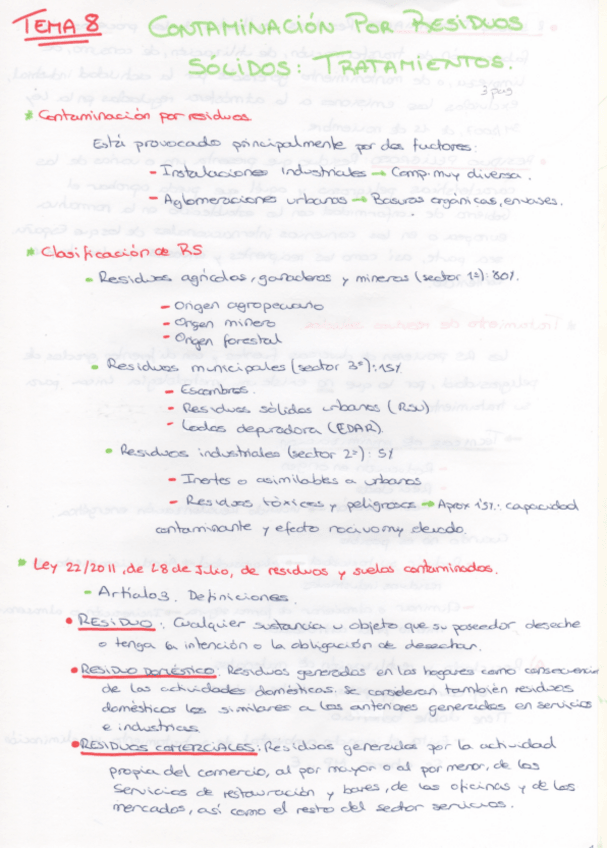 TEMA 8 CONTAMINACIÓN POR RESIDUOS
SÓLIDOS: TRATAMIENTOS.
3 pág
* Contaminación por residuos
Está provocado principalmente por dos factores:
- Instalaciones Industriales → Comp. muy diversa.
- Aglomeraciones urbanas → Basuras orgánicas, envases.
* Clasificación de RS
- Residuos agrícolas, ganaderos y mineros (sector 1º): 80%.
- Origen agropecuario
- Origen minero
- Origen forestal
• Residuos municipales (sector 3º): 15%
- Escombros.
- Residuos sólidos urbanos (RSU)
- Lodos depuradora (EDAR).
• Residuos industriales (sector 2º): 5%
- Inertes o asimilables a urbanos
- Residuos tóxicos y peligrosos → Aprox 1'5%.: capacidad
contaminante y efecto nocivo muy elevado.
* Ley 22/2011, de 28 de Julio, de residuos y suelos contaminados.
- Artículo 3. Definiciones.
• RESIDUO: Cualquier sustancia u objeto que su poseedor deseche
o tenga la intención o la obligación de desechar.
• RESIDUO DOMÉSTICO: Residuos generados en los hogares como consecuencia
de las actividades domésticas. Se consideran también residuos
domésticos los similares a los anteriores generados en servicios
e industrias.
• RESIDUOS COMERCIALES: Residuos generados por la actividad
propia del comercio, al por mayor o al por menor, de los
servicios de restauración y bares, de las oficinas y de los
mercados, así como el resto del sector servicios.